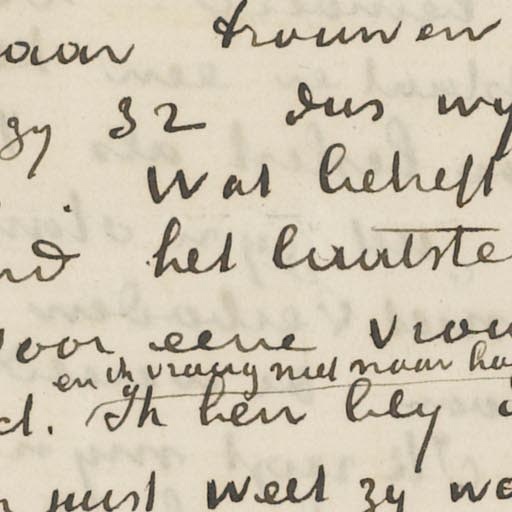 aar trouwen
zy 32 dus wy
Wat betreft
nd het laatste
voor eene vrou
en ik vraag niet naar ha
d. Ik ben bly
n juist weet zy wa